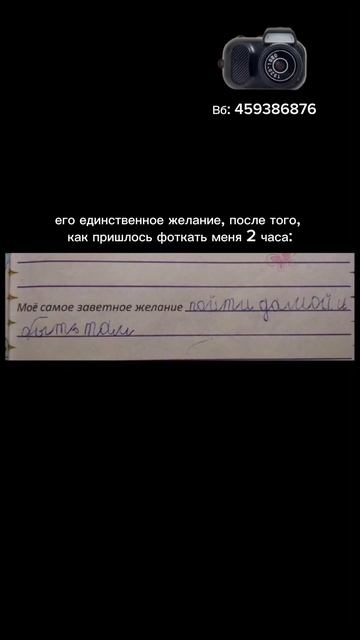 Вб: 459386876
его единственное желание, после того,
как пришлось фоткать меня 2 часа:
Моё самое заветное желание пойти домой и
быть там